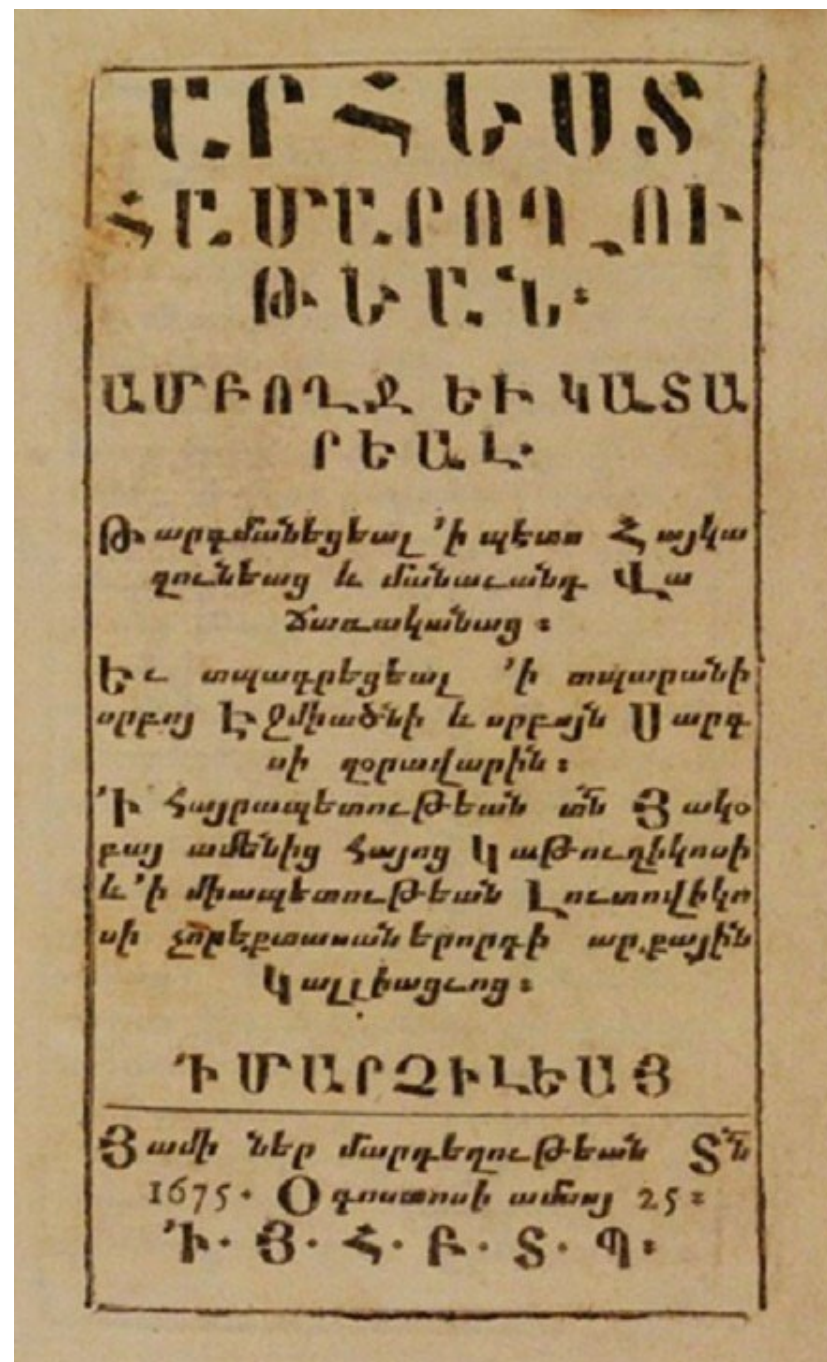 ԱՐՀԵՍՏ
ՀԱՄԱՐՈՂՈՒ
ԹԵԱՆ։
ԱՄԲՈՂՋ ԵՒ ԿԱՏԱ
ՐԵԱԼ·
Թարգմանեցեալ ՚ի պէտս Հայկա
զունեաց և մանաւանդ Վա
ճառականաց ։
Եւ տպագրեցեալ ՚ի տպարանի
սրբոյ Էջմիածնի և սրբոյն Սարգ
սի զօրավարին ։
՚Ի Հայրապետութեան տն Յակօ
բայ ամենից Հայոց Կաթուղիկոսի
և ՚ի միապետութեան Լուտովիկո
սի չորեքտասաներորդի արքային
Կալլիացւոց ։
՚Ի ՄԱՐԶԻԼԵԱՅ
Յամի ներ մարդեղութեան Տն
1675· Օգոստոսի ամսոյ 25 ։
՚Ի· Յ· Հ· Բ· Տ· Պ։